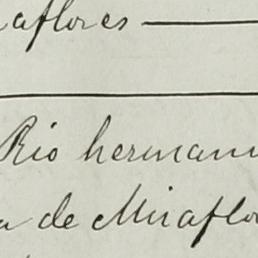 aflores
Rio herman
a de Miraflo